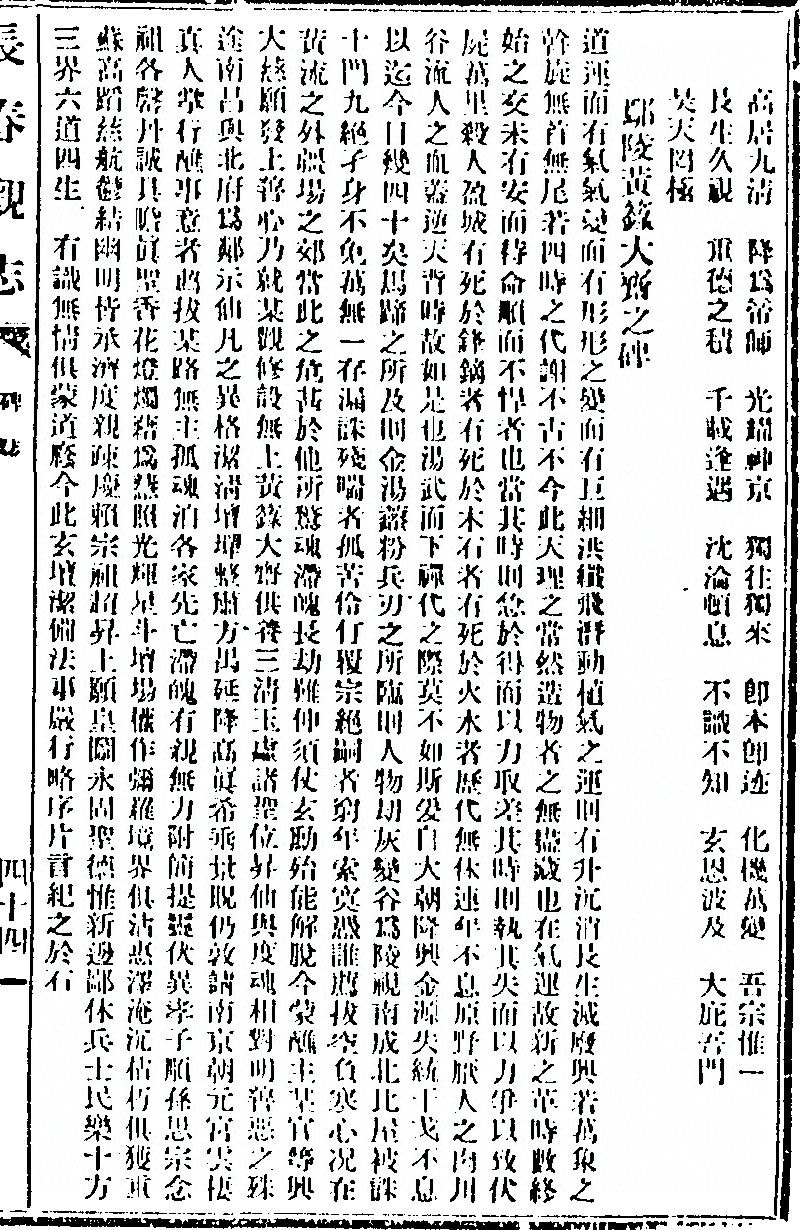 高居九清　降爲帝師　光耀神京　獨往獨來　卽本卽迹　化機萬變　吾宗惟一
長生久視　重德之積　千載逢遇　沈淪頓息　不識不知　玄恩波及　大庇吾門
昊天罔極
鄢陵黃籙大齋之碑
道運而有氣氣變而有形形之變而有巨細洪纖飛潛動植氣之運則有升沉消長生滅廢興若萬象之
幹旋無首無尾若四時之代謝不古不今此天理之當然造物者之無盡藏也在氣運故新之革時數終
始之交未有安而待命順而不悍者也當其時則怠於得而以力取差其時則執其失而以力爭以致伏
屍萬里殺人盈城有死於鋒鏑者有死於木石者有死於火水者歷代無休連年不息原野厭人之肉川
谷流人之血蓋逆天背時故如是也湯武而下禪代之際莫不如斯爰自大朝隆興金源失統干戈不息
以迄今日幾四十矣馬蹄之所及則金湯虀粉兵刃之所臨則人物劫灰變谷爲陵視南成北比屋被誅
十門九絕孑身不免萬無一存漏誅殘喘者孤苦伶仃覆宗絕嗣者窮年索寞憑誰薦拔空負寒心況在
黃流之外疆場之郊當此之危甚於他所驚魂滯魄長劫難伸須仗玄勛殆能解脫今蒙醮主某官等興
大慈願發上善心乃就某觀修設無上黃籙大齋供養三清玉虛諸聖位昇仙與度魂相對明善惡之殊
途南昌與北府爲鄰示仙凡之異格潔清壇墠整肅方禺延降高眞希乖景貺仍敦請南京朝元宮雲棲
真人掌行醮事意者薦拔某路無主孤魂洎各家先亡滯魄有親無力附簡提靈伏異孝子順孫思宗念
祖各罄丹誠具瞻眞聖香花燈燭藉爲慈照光輝星斗壇場儼作彌羅境界俱沾惠澤淹沉枯朽俱獲重
蘇高蹈慈航鬱結幽明皆承濟度親疎慶賴宗祖超昇上願皇圖永固聖德惟新邊鄙休兵士民樂十方
三界六道四生　有識無情俱蒙道廕今此玄壇潔備法事嚴行略序片言紀之於石
長春觀志
碑
四十四